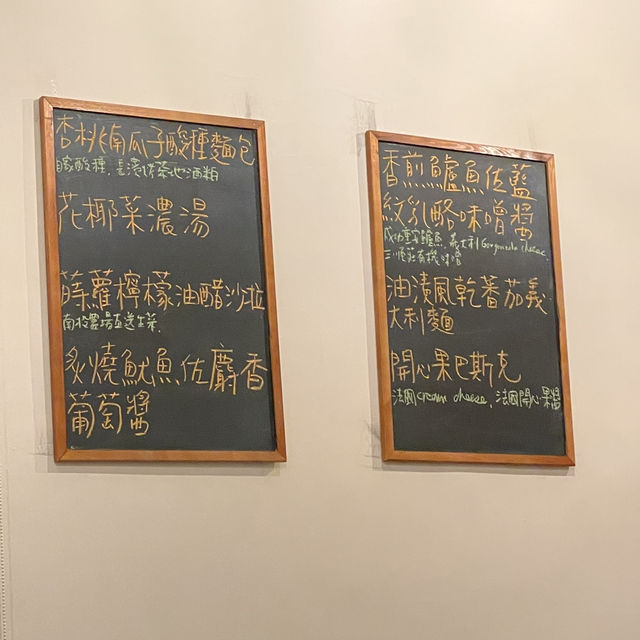 杏桃南瓜子酸種麵包
自家酸種
花椰菜濃湯
蒔蘿檸檬油醋沙拉
南投農場直送生菜.
炙燒魷魚佐麝香
葡萄醬
香煎鱸魚佐藍
紋乳酪味噌醬
鱸魚. 義大利 Gorgonzola cheese.
有機味噌
油漬風乾蕃茄義
大利麵
開心果巴斯克
法國 cream cheese. 法國開心果醬